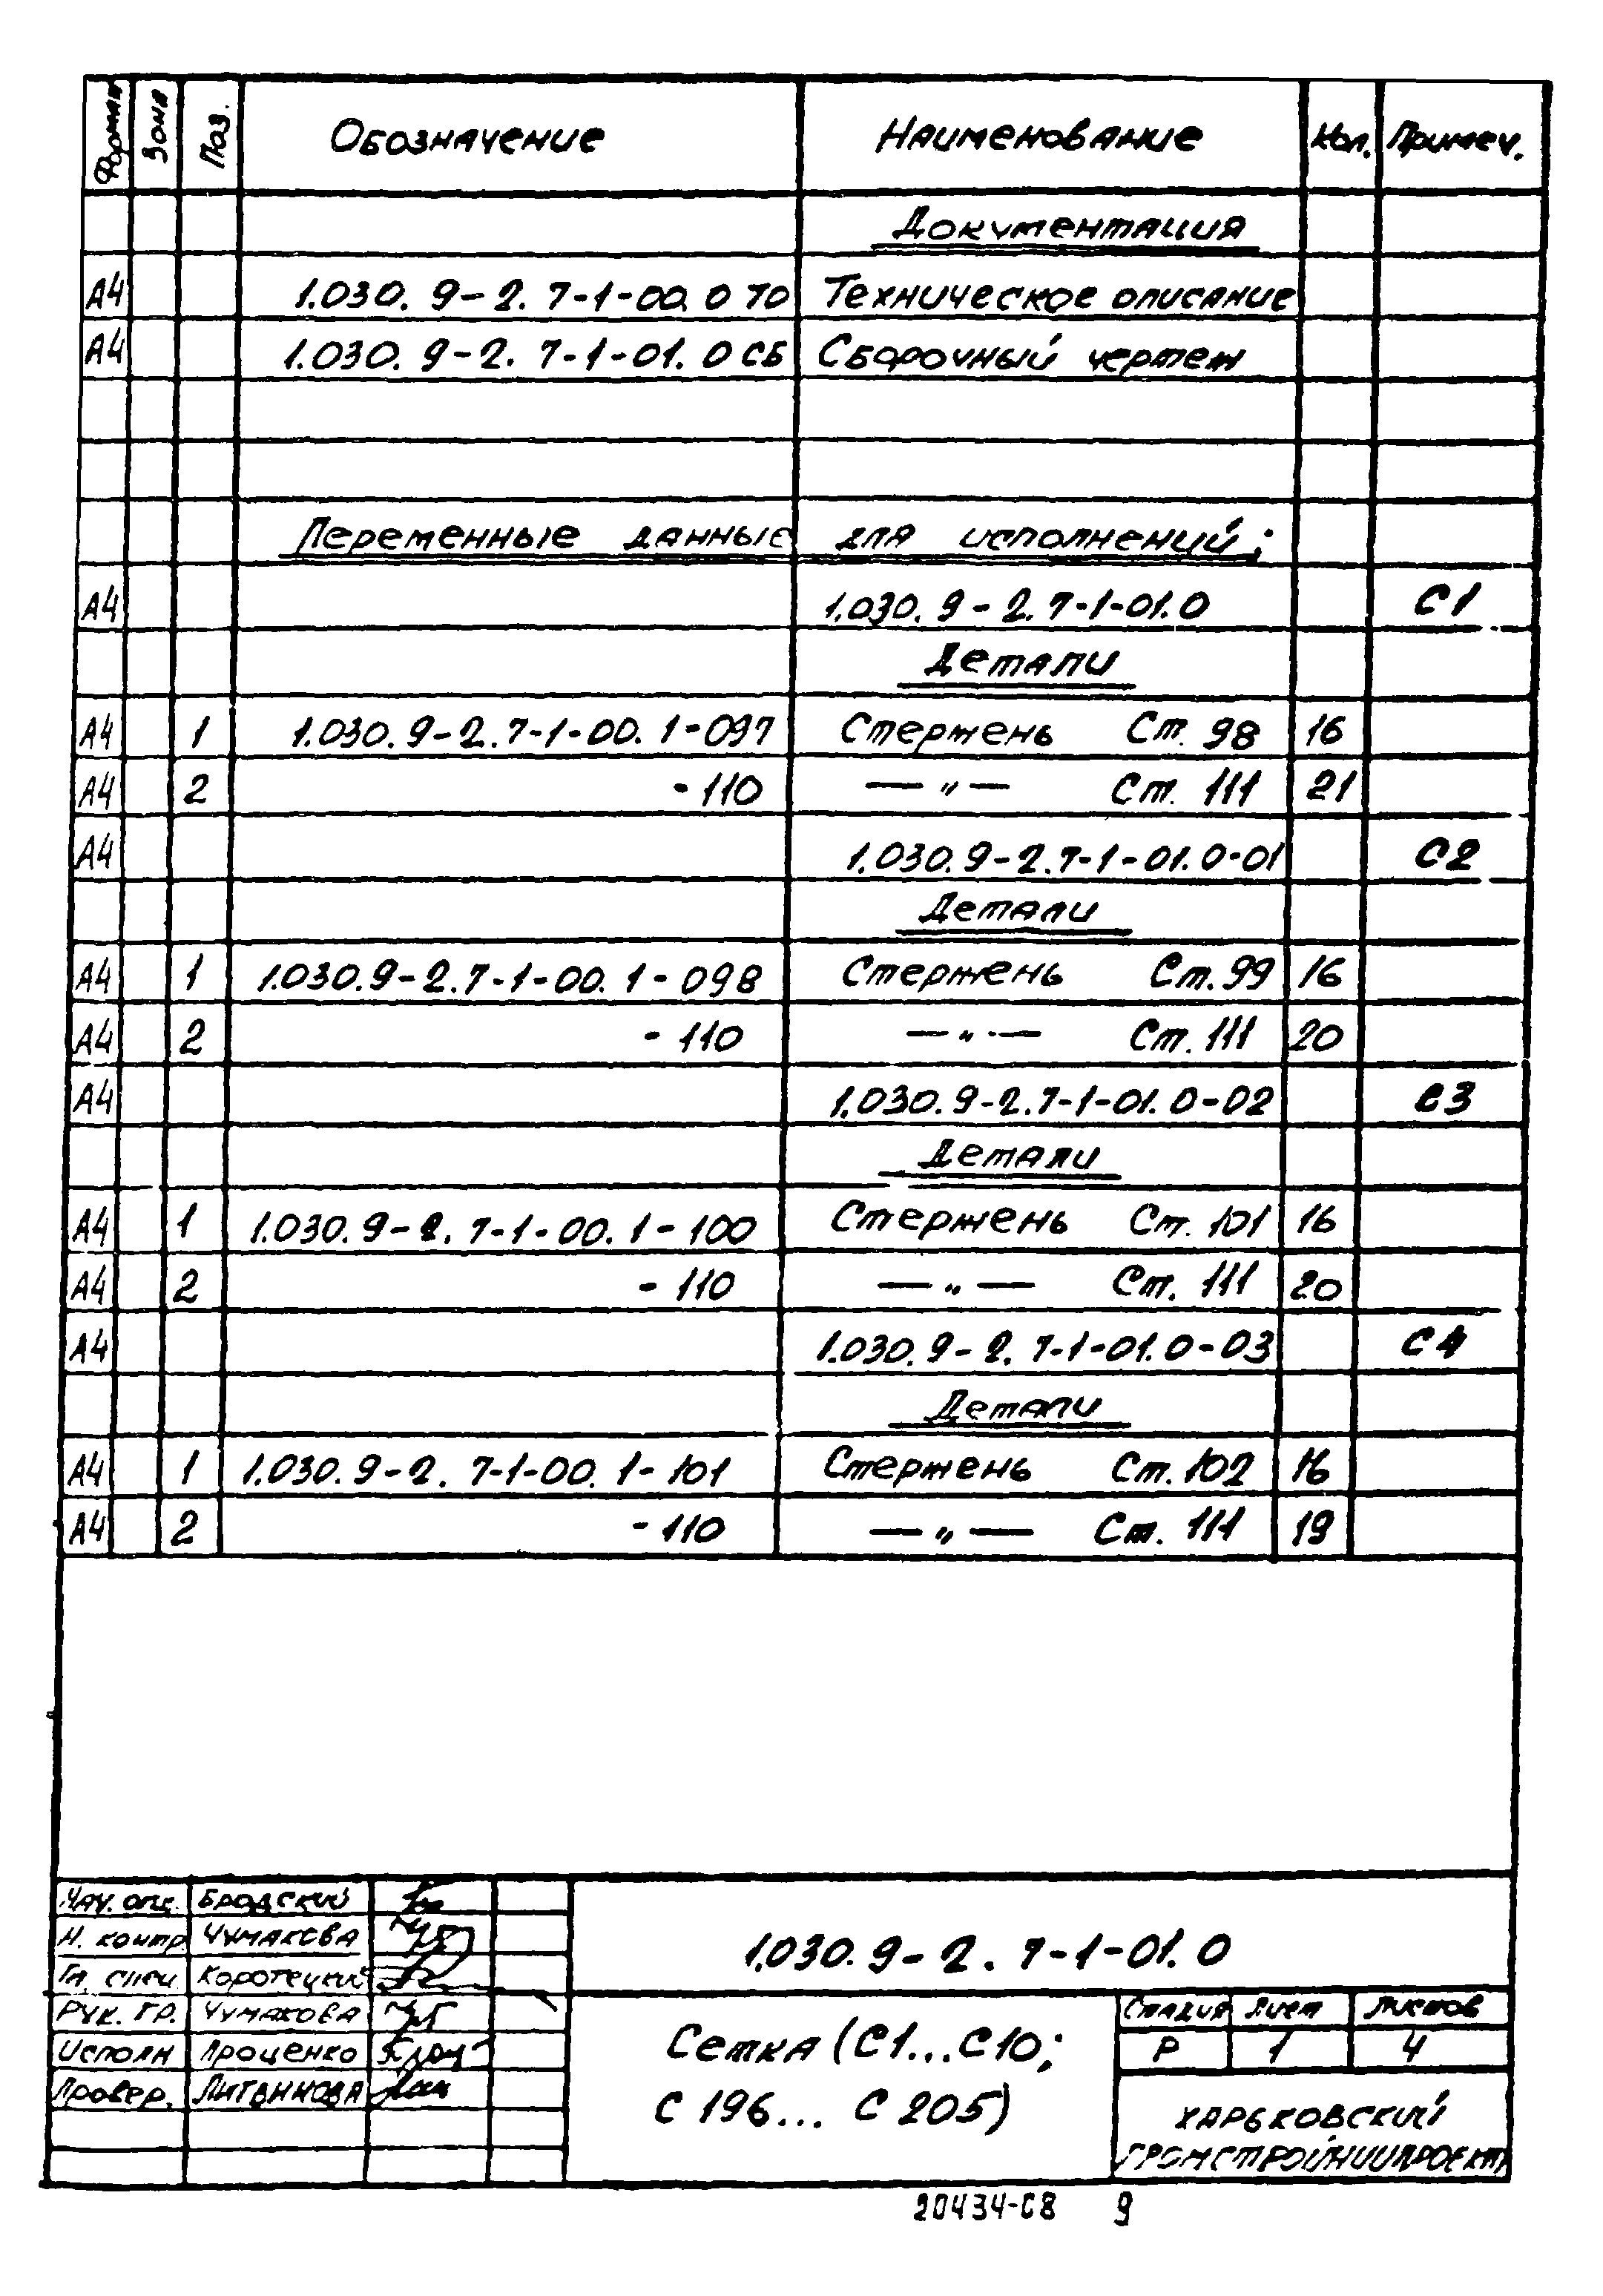 Формат Зона Поз. Обозначение Наименование Кол. Примеч.
Документация
А4 1.030.9-2.7-1-00.0 ТО Техническое описание
А4 1.030.9-2.7-1-01.0 СБ Сборочный чертеж
Переменные данные для исполнений:
А4 1.030.9-2.7-1-01.0 С1
Детали
А4 1 1.030.9-2.7-1-00.1-097 Стержень Ст. 98 16
А4 2 -110 —"— Ст. 111 21
А4 1.030.9-2.7-1-01.0-01 С2
Детали
А4 1 1.030.9-2.7-1-00.1-098 Стержень Ст. 99 16
А4 2 -110 —"— Ст. 111 20
А4 1.030.9-2.7-1-01.0-02 С3
Детали
А4 1 1.030.9-2.7-1-00.1-100 Стержень Ст. 101 16
А4 2 -110 —"— Ст. 111 20
А4 1.030.9-2.7-1-01.0-03 С4
Детали
А4 1 1.030.9-2.7-1-00.1-101 Стержень Ст. 102 16
А4 2 -110 —"— Ст. 111 19
Нач. отд. Бродский
Н. контр. Чумакова
Гл. спец. Коротецкий
Рук. гр. Чумакова
Исполн Проценко
Провер. Литвинова
1.030.9-2.7-1-01.0
Сетка (С1...С10;
С196... С205)
Стадия Лист Листов
Р 1 4
Харьковский
Промстройниипроект
20434-08 9